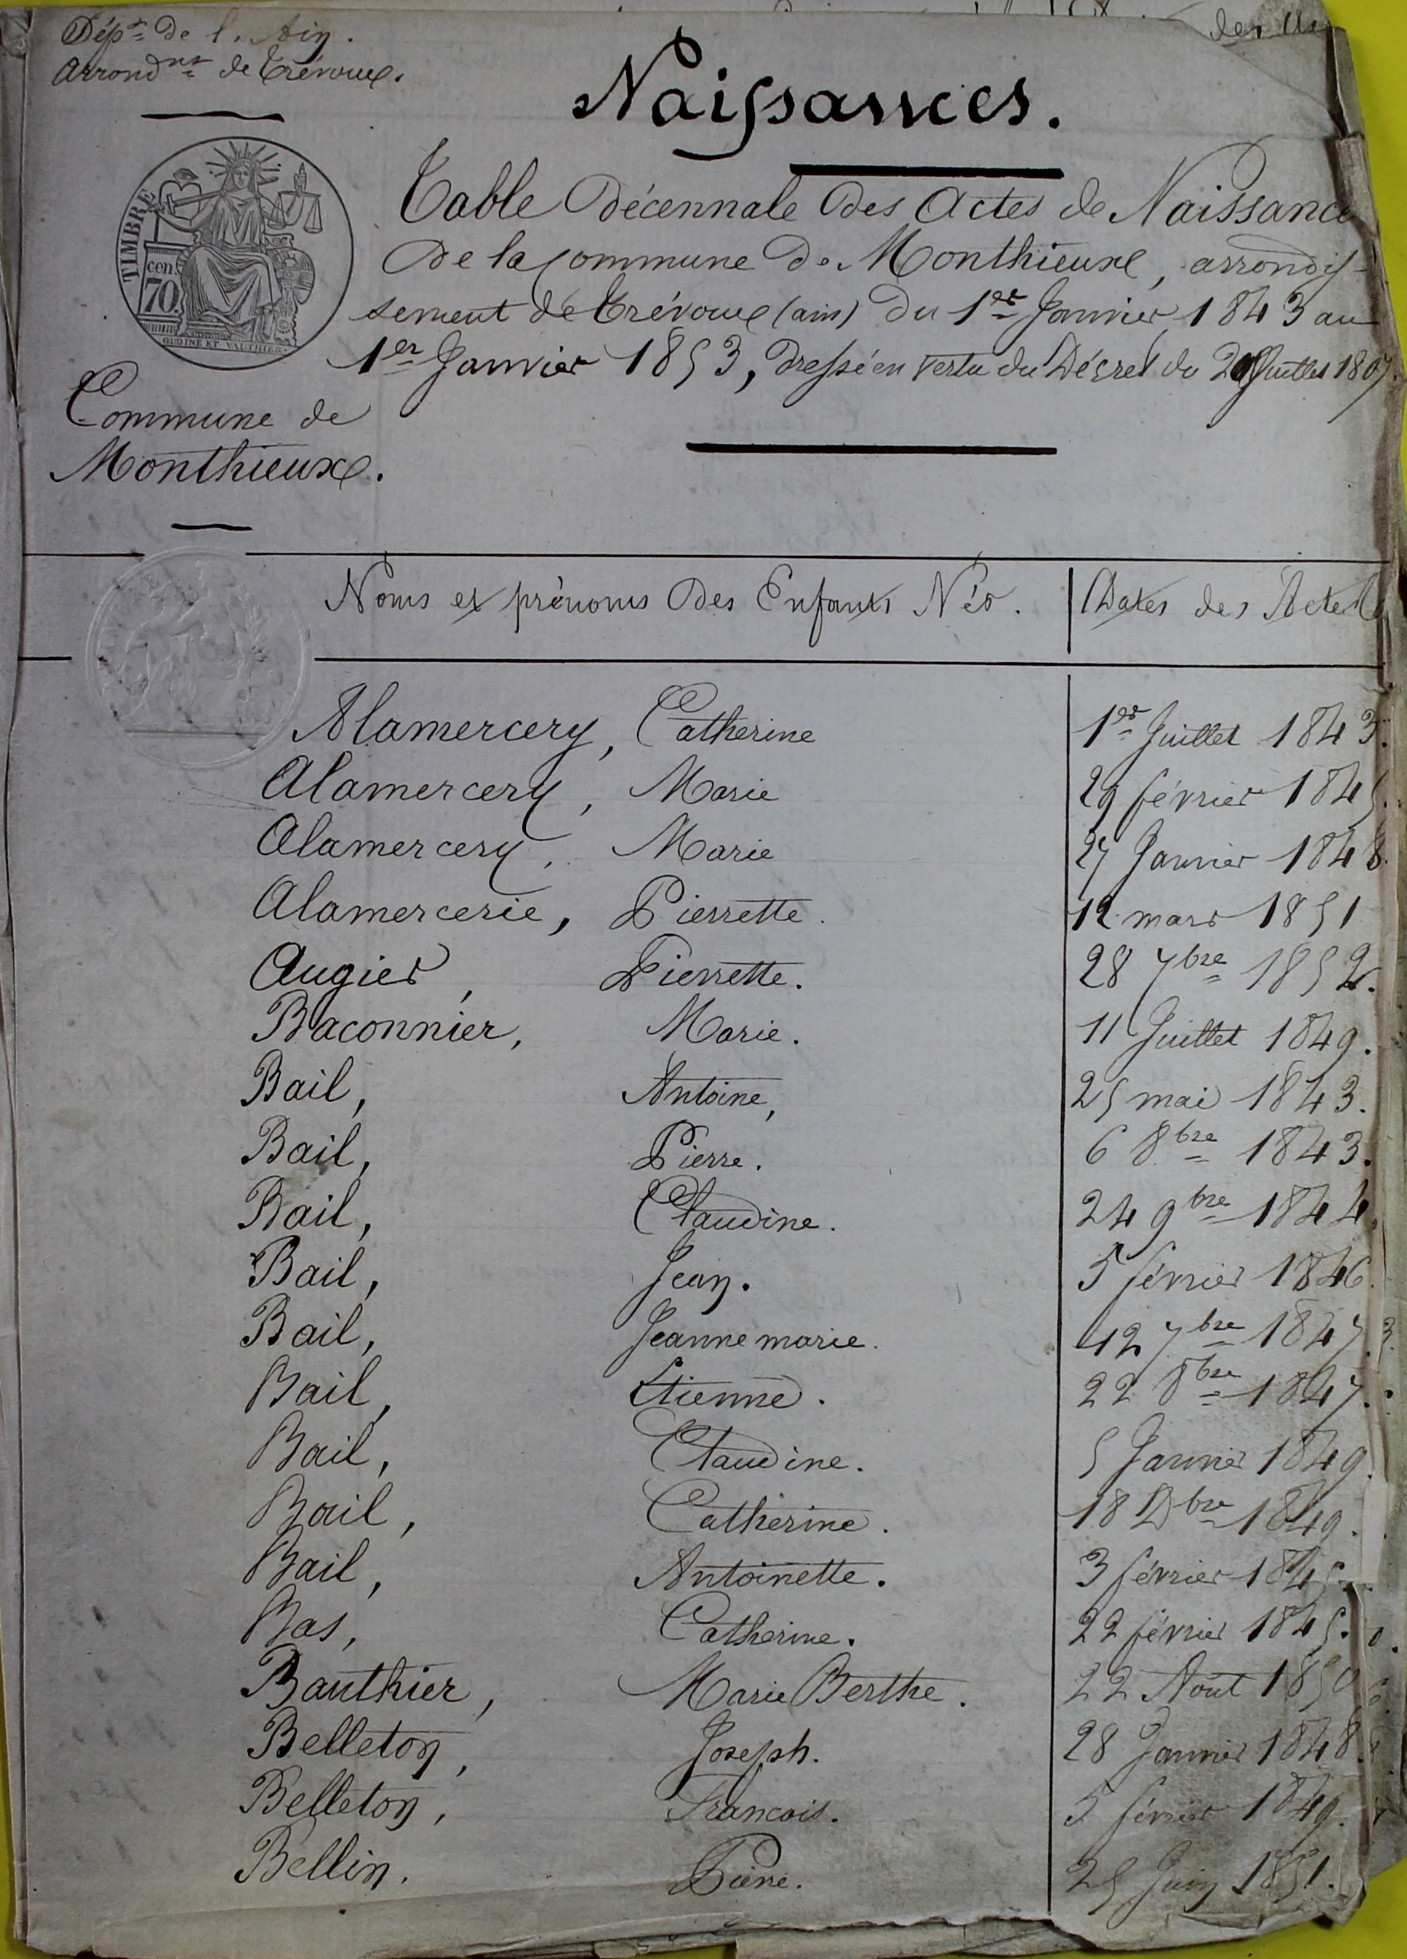 Dépt de l'Ain.
Arrondnt de Trévoux.
Naissances.
TIMBRE
cen.
70.
OUDINÉ ET VAUTHIER
Table Décennale Des Actes de Naissance
De la Commune De Monthieux, arrondis-
sement de Trévoux (ain) Du 1er Janvier 1843 au
1er Janvier 1853, Dressé en vertu du Décret du 20 Juillet 1807.
Commune de
Monthieux.
Noms et prénoms Des Enfants Nés. Dates des Actes
Alamercery, Catherine 1er Juillet 1843.
Alamercery, Marie 29 février 1845.
Alamercery, Marie 27 Janvier 1848
Alamercerie, Pierrette. 12 mars 1851
Augier, Pierrette. 28 7bre 1852.
Baconnier, Marie. 11 Juillet 1849.
Bail, Antoine, 25 mai 1843.
Bail, Pierre. 6 8bre 1843.
Bail, Claudine. 24 9bre 1844.
Bail, Jean. 5 février 1846.
Bail, Jeanne marie. 12 7bre 1847.
Bail, Etienne. 22 8bre 1847.
Bail, Claudine. 5 Janvier 1849.
Bail, Catherine. 18 Dbre 1849.
Bail, Antoinette. 3 février 1845.
Bas, Catherine. 22 février 1845.
Bauthier, Marie Berthe. 22 Aout 1850
Belleton, Joseph. 28 Janvier 1848.
Belleton, Francois. 5 février 1849.
Bellin. Pierre. 25 Juin 1851.